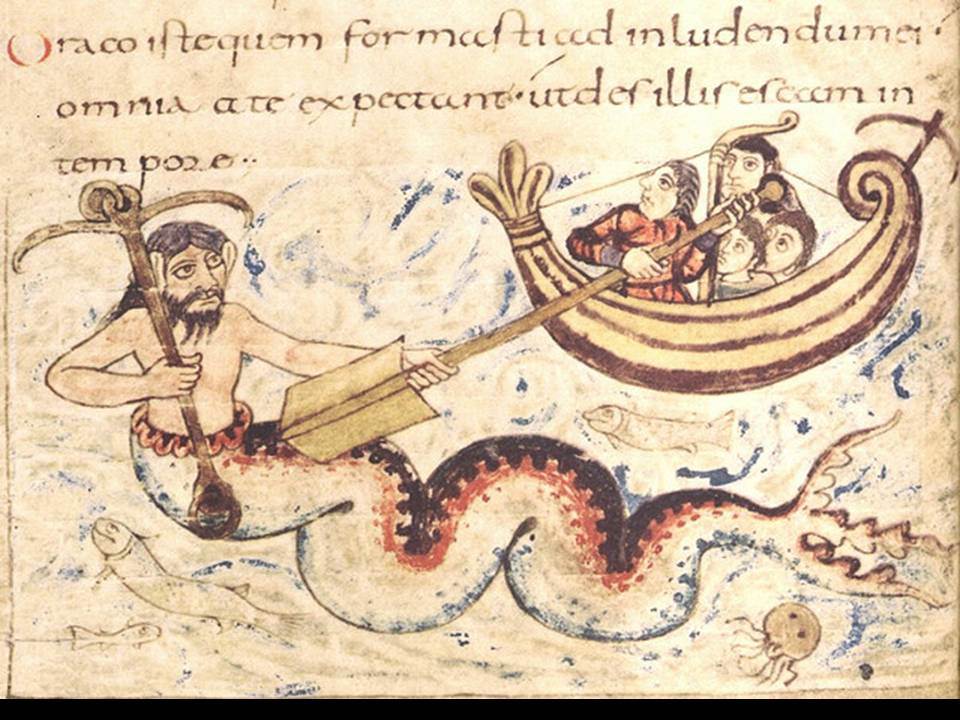 Draco iste quem formasti ad inludendum ei·
omnia a te expectant· ut des illis escam in
tempore··